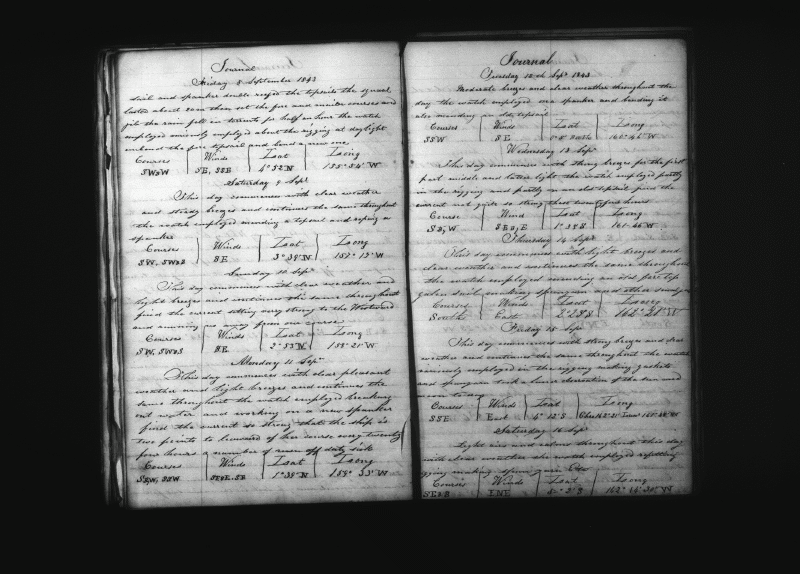 Journal
Friday 8 September 1843
sail and spanker double reefed the topsails the squal
lasted about  an hour set the fore and main courses and
jib the rain fell in torrents for half an hour the watch
employed variously employed about the rigging at daylight
unbend the fore topsail and bend a new one
Courses Winds Lat Long
SWbW SE, SSE 4° 52 N 155° 54' W
Saturday 9 Sept
This day commences with clear weather
and steady breezes and continues the same throughout
the watch employed mending a topsail and roping a
spanker
Courses Winds Lat Long
SW. SWbS SE 3° 39' N 157° 15' W
Sunday 10 Sept
This day commences with clear weather and
light breezes and continues the same throughout
find the current setting very strong to the Westward
and running us away from our course
Courses Winds Lat Long
SW, SWbS SE 2° 53' N 158° 21' W
Monday 11 Sept
This day commences with clear pleasant
weather and light breezes and continues the
same throughout the watch employed breaking
out water and working on a new spanker
find the current so strong that the ship is
two points to leeward of her course every twenty
four hours a number of men off duty sick
Courses Winds Lat Long
SSW 1° 38' N 159° 33' W
Journal
Tuesday 12th Sept 1843
Moderate breezes and clear weather throughout the
day the watch employed on a spanker and bending it
also mending an old topsail
Courses Winds Lat Long
SSW SE 0° 8 North W
Wednesday 13 Sept
This day commences with strong breezes for the first
part middle and latter light the watch employed partly
in the rigging and partly on an old topsail find the
current not quite so strong these twentyfour hours
Course Wind Lat Long
SbW 1° 39 S 161° 46 W
Thursday 14 Sept
This day commences with light breezes and
clear weather and continues the same throughout
the watch employed mending an old fore top
gallan sail making spunyarn and other
Courses Winds Lat Long
South East 2° 28 S 162° 28' W
Friday 15 Sept
This day commences with strong breezes and clear
weather and continues the same throughout the watch
variously employed in the rigging making gaskets
and spunyarn took a lunar observation of the sun and
moon to day
Courses Winds Lat Long
SSE East 4° 12 S
Saturday 16 Sept
Light airs and calms throughout this day
with clear weather the watch employed refitting
rigging making spun yarn &c
Courses Winds Lat Long
SEbS ENE 162° 14' 30" W